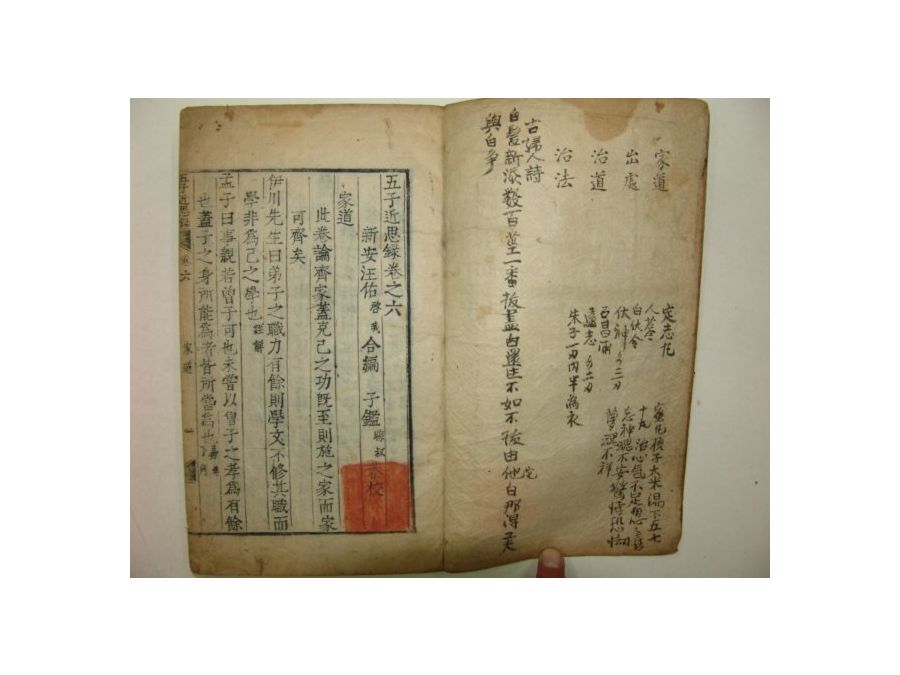 家道
出處
治道
治法
定志丸
人蔘
白伏令
伏神 各三刀
石菖蒲
遠志 各二刀
朱子一刀內半為衣
蜜丸梧子大米湯下五七
十丸治心氣不足
忘神魂不安驚悸恐怯
夢寐不祥
古婦人詩
白髮新添數百莖一番拔盡白還生不如不拔由他白那得工夫
與白爭
五子近思錄卷之六
新安汪佑啓我合編 子鑑晦叔恭校
家道
此卷論齊家蓋克己之功既至則施之家而家
可齊矣
伊川先生曰弟子之職力有餘則學文不修其職而
學非為己之學也經解
孟子曰事親若曾子可也未嘗以曾子之孝為有餘
也蓋子之身所能為者皆所當為也
五子近思錄 卷六 家道 一